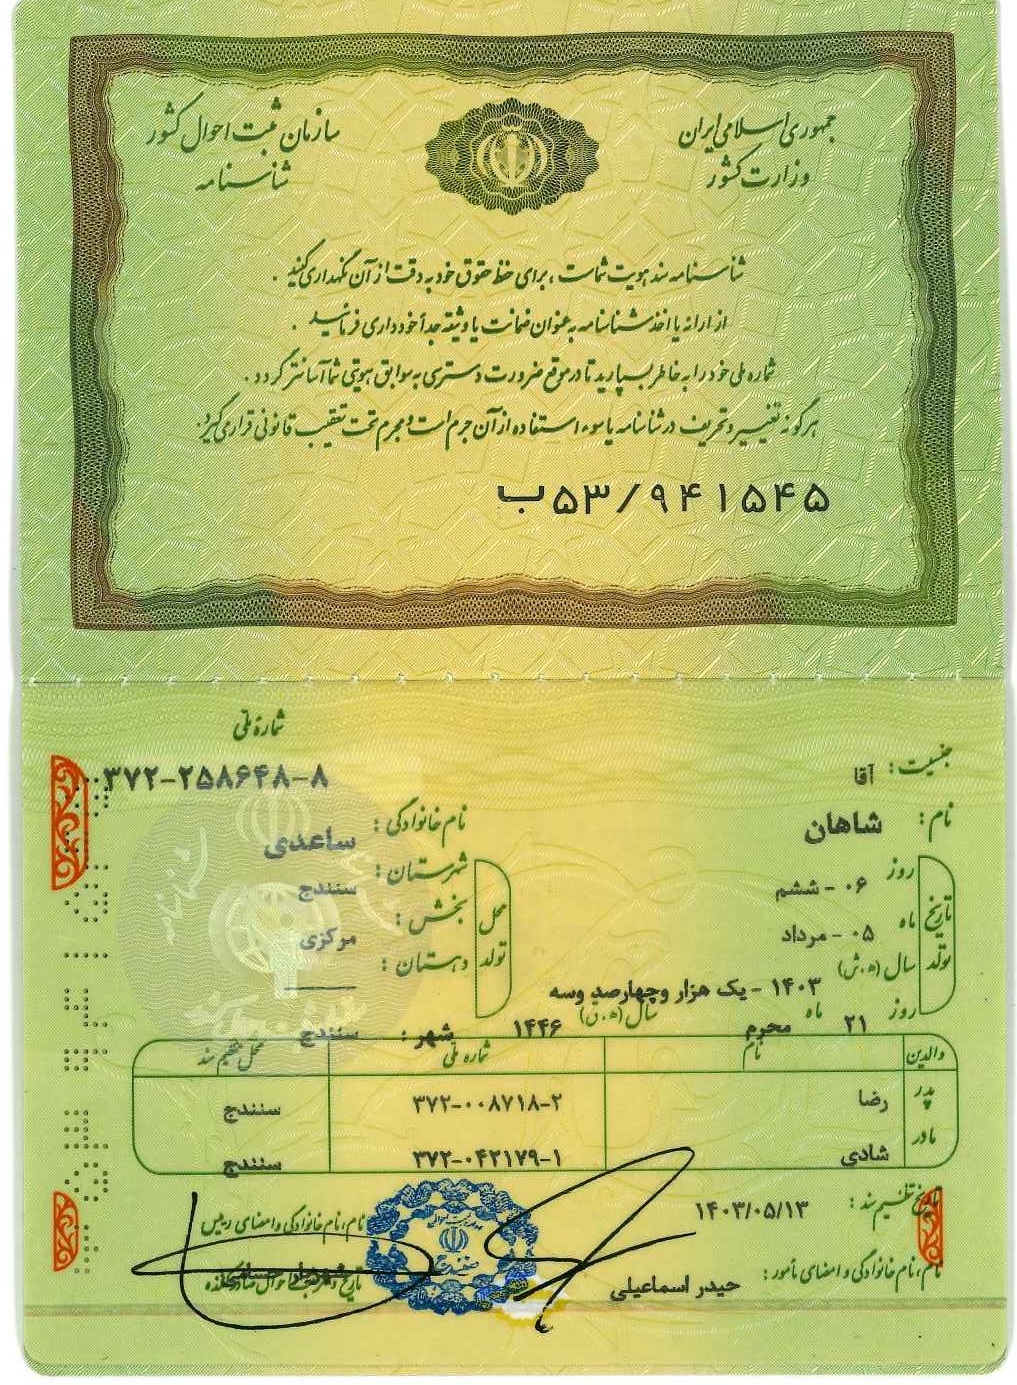 جمهوری اسلامی ایران
وزارت کشور
سازمان ثبت احوال کشور
شناسنامه
شناسنامه سند هویت شماست ، برای حفظ حقوق خود به دقت از آن نگهداری کنید .
از ارائه یا اخذ شناسنامه به عنوان ضمانت یا وثیقه جداً خودداری فرمائید .
شماره ملی خود را به خاطر بسپارید تا در موقع ضرورت دسترسی به سوابق هویتی شما آسانتر گردد .
هرگونه تغییر و تحریف در شناسنامه یا سوء استفاده از آن جرم است و مجرم تحت تعقیب قانونی قرار می گیرد .
ب۵۳/۹۴۱۵۴۵
شمارهٔ ملی
۳۷۲-۲۵۸۶۴۸-۸
جنسیت : آقا
نام : شاهان
نام خانوادگی : ساعدی
تاریخ تولد
روز ۰۶ - ششم
ماه ۰۵ - مرداد
سال (ه.ش) ۱۴۰۳ - یک هزار وچهارصد وسه
روز ۲۱ ماه محرم سال (ه.ق) ۱۴۴۶
محل تولد
شهرستان : سنندج
بخش : مرکزی
دهستان : ———
شهر : سنندج
والدین نام شماره ملی محل تنظیم سند
پدر رضا ۳۷۲-۰۰۸۷۱۸-۲ سنندج
مادر شادی ۳۷۲-۰۴۲۱۷۹-۱ سنندج
تاریخ تنظیم سند : ۱۴۰۳/۰۵/۱۳
نام، نام خانوادگی و امضای مأمور : حیدر اسماعیلی
نام، نام خانوادگی و امضای رییس